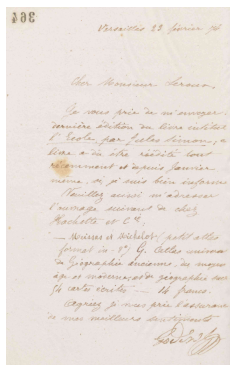 Versailles 23 février
Cher Monsieur Leroux,
Je vous prie de m'envoyer
dernière édition du livre intitulé
l'Ecole, par Jules Simon,
livre a dû être réédité tout
récemment et depuis janvier
même, si je suis bien informé
Veuillez aussi m'adresser
l'ouvrage suivant de chez
Hachette et Cie
Meissas et Michelot, petit atlas
format in 8º
Géographie ancienne, du moyen
âge et moderne, et de géographie
54 cartes écrites — 14 francs.
Agréez je vous prie l'assurance
de mes meilleurs sentiments